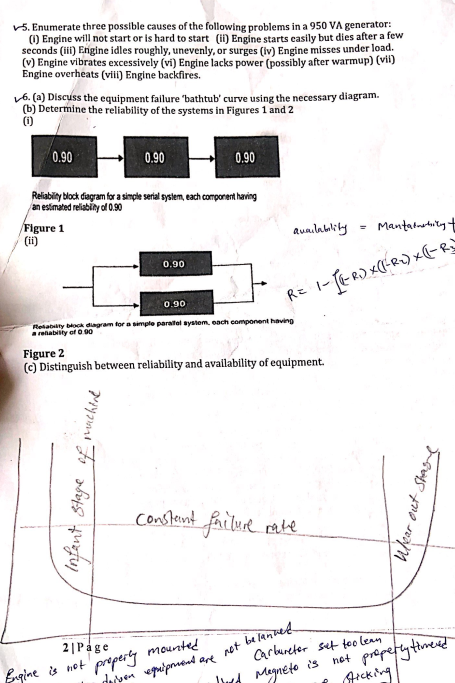 5. Enumerate three possible causes of the following problems in a 950 VA generator:
(i) Engine will not start or is hard to start (ii) Engine starts easily but dies after a few
seconds (iii) Engine idles roughly, unevenly, or surges (iv) Engine misses under load.
(v) Engine vibrates excessively (vi) Engine lacks power (possibly after warmup) (vii)
Engine overheats (viii) Engine backfires.
6. (a) Discuss the equipment failure 'bathtub' curve using the necessary diagram.
(b) Determine the reliability of the systems in Figures 1 and 2
(i)
0.90 0.90 0.90
Reliability block diagram for a simple serial system, each component having
an estimated reliability of 0.90
Figure 1
(ii)
availability =
R = 1-[(1-R1)×(1-R2)×(1-R3
0.90
0.90
Reliability block diagram for a simple parallel system, each component having
a reliability of 0.90
Figure 2
(c) Distinguish between reliability and availability of equipment.
Infant stage of machine
Constant failure rate
Wear out stage
2|Page
Engine is not properly mounted
equipment are not balanced
Carbureter set too lean
Magneto is not properly timed
sticking